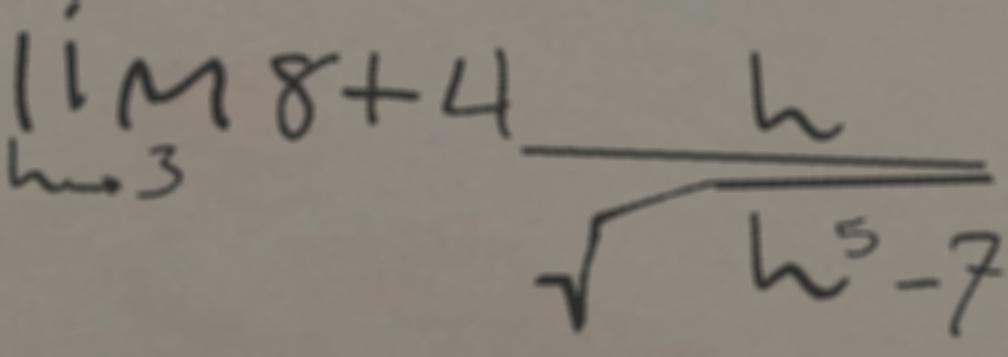 lim_{h→3} 8+4 \frac{h}{\sqrt{h^5-7}}